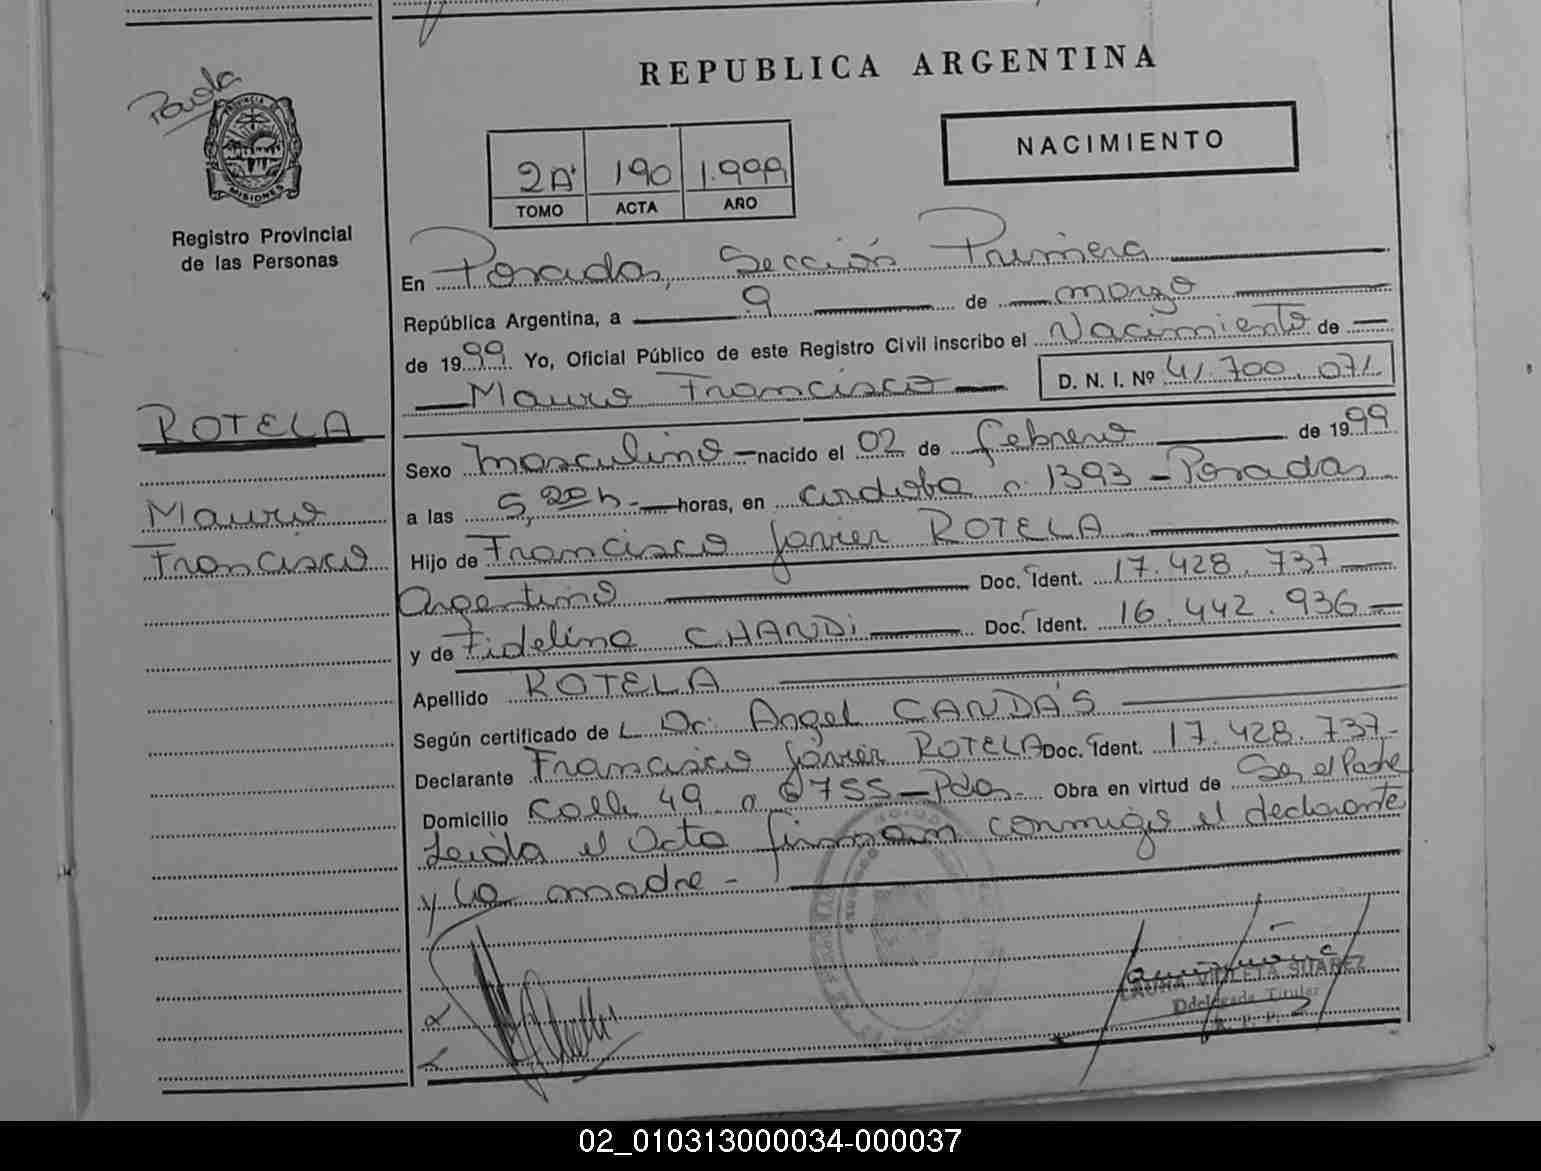 REPUBLICA ARGENTINA
NACIMIENTO
2A 190 1.999
TOMO ACTA AÑO
PROVINCIA DE
MISIONES
Registro Provincial
de las Personas
En Posadas, Sección Primera
República Argentina, a 9 de marzo
de 1999 Yo, Oficial Público de este Registro Civil inscribo el Nacimiento de
Mauro Francisco D. N. I. Nº 41.700.071
ROTELA
Mauro
Francisco
Sexo masculino nacido el 02 de febrero de 1999
a las 5,20 h. horas, en Córdoba n 1393 - Posadas
Hijo de Francisco Javier ROTELA
Argentino Doc. Ident. 17.428.737
y de Fidelina CHANDI Doc. Ident. 16.442.936
Apellido ROTELA
Según certificado de L Dr. Angel CANDÁS
Declarante Francisco Javier ROTELA Doc. Ident. 17.428.737
Domicilio Calle 49 n 6755 - Pdas - Obra en virtud de Ser el Padre
Leida el Acta firman conmigo el declarante
y la madre -
LAURA VIOLETA SUAREZ
Delegada Titular
R. P. P.
02_010313000034-000037